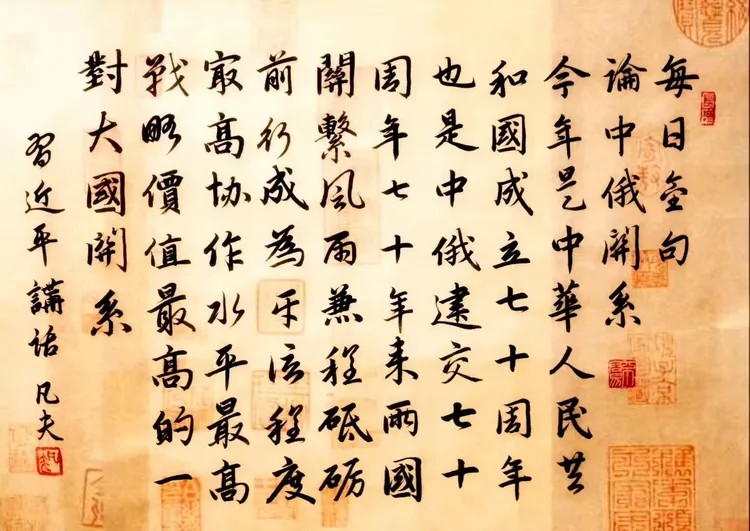 每日金句
論中俄関系
今年是中華人民共
和國成立七十周年
也是中俄建交七十
周年七十年来兩國
關繫風雨兼程砥砺
前行成為互信程度
㝡高协作水平最高
戰略價值最高的一
對大國関系
習近平講話 凡夫